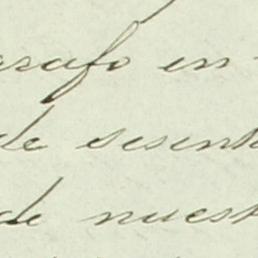 arafo en-
de sesent
de nuest